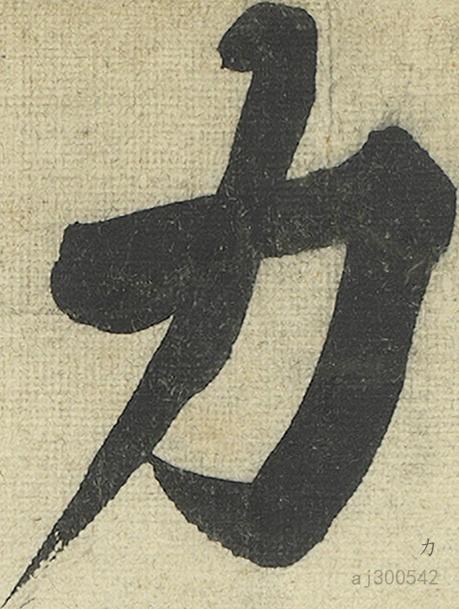 力
力
aj300542